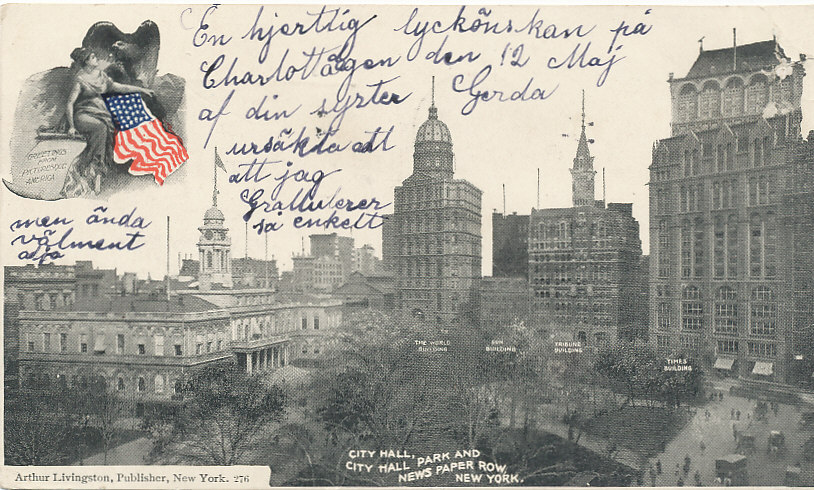 En hjertlig lyckönskan på
Charlottdagen den 12 Maj
af din syster Gerda
ursäkta att
att jag
Gratulerer
så enkelt
men ända
välment
GREETINGS
FROM
PICTURESQUE
AMERICA
THE WORLD
BUILDING
SUN
BUILDING
TRIBUNE
BUILDING
TIMES
BUILDING
CITY HALL, PARK AND
CITY HALL
NEWS PAPER ROW,
NEW YORK.
Arthur Livingston, Publisher, New York. 276